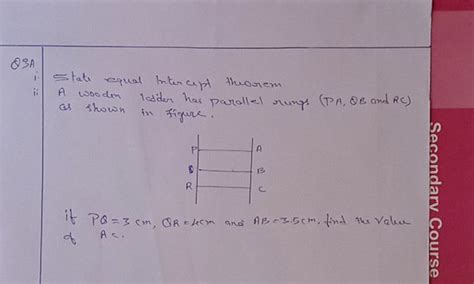 Q3A
i State equal Intercept theorem
ii A wooden ladder has parallel rungs (PA, QB and RC)
as shown in figure.
P A
B
R C
if PQ = 3 cm, QR = 4cm and AB = 3.5cm. find the value
of AC.
Secondary Course